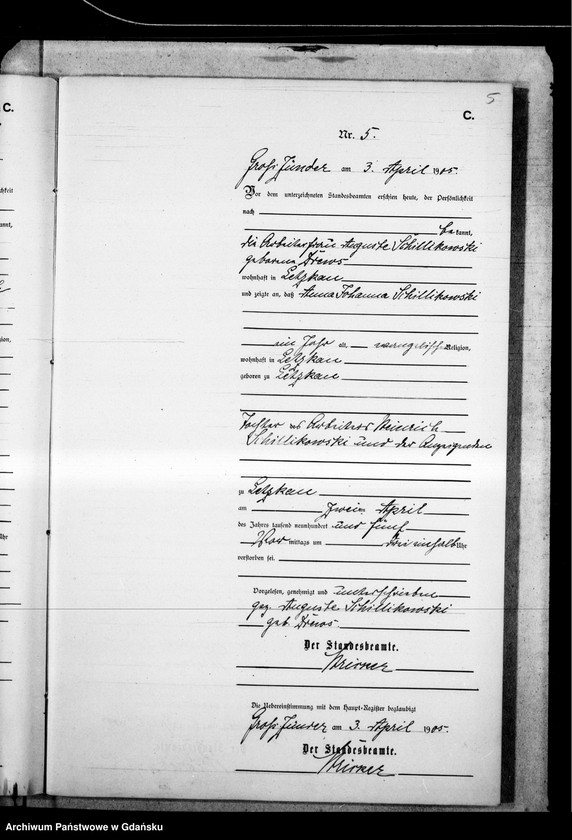 5
C.
C.
Nr. 5.
Groß Zünder am 3. April 1905.
Vor dem unterzeichneten Standesbeamten erschien heute, der Persönlichkeit
nach
be kannt,
die Arbeiterfrau Auguste Schillikowski
geborene Drews
wohnhaft in Letzkau
und zeigte an, daß Anna Johanna Schillikowski
ein Jahr alt, evangelischer Religion,
wohnhaft in Letzkau
geboren zu Letzkau
Tochter des Arbeiters Heinrich
Schillikowski und der Anzeigenden
zu Letzkau
am zweiten April
des Jahres tausend neunhundert und fünf
Vor mittags um drei einhalb Uhr
verstorben sei.
Vorgelesen, genehmigt und unterschrieben
gez. Auguste Schillikowski
geb. Drews
Der Standesbeamte.
Die Uebereinstimmung mit dem Haupt-Register beglaubigt
Groß Zünder am 3. April 1905.
Der Standesbeamte.
Archiwum Państwowe w Gdańsku